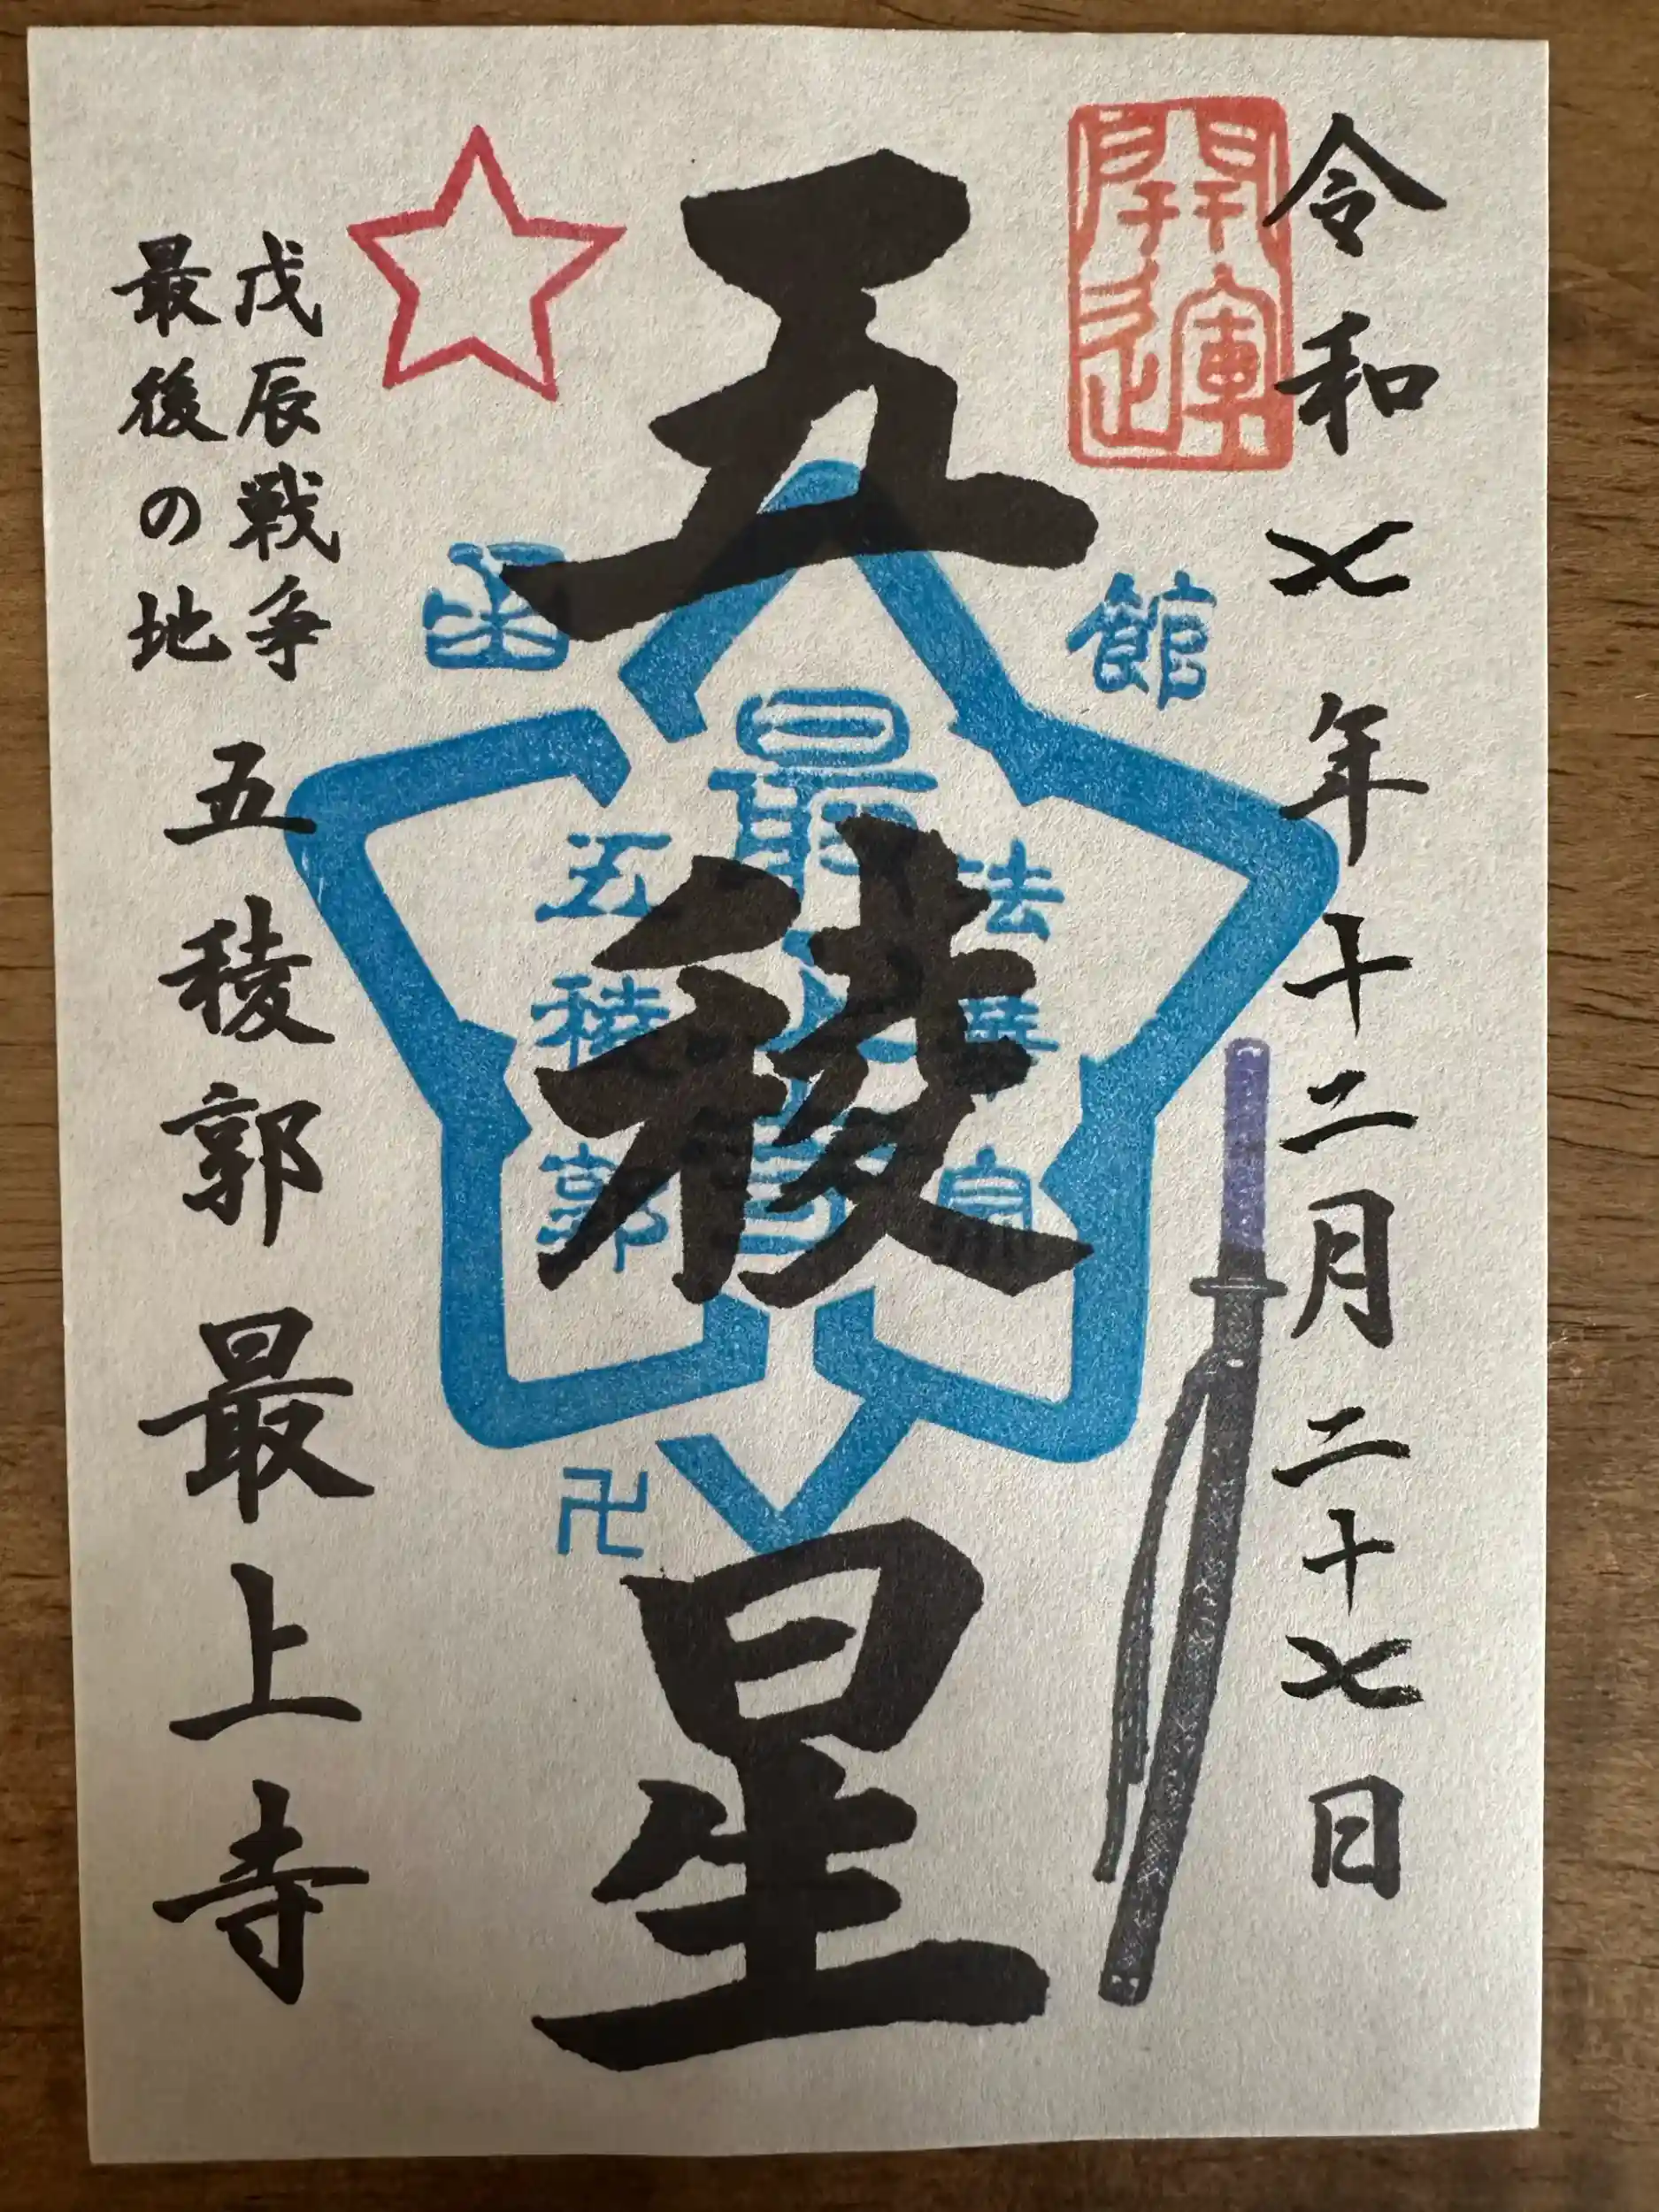 令和七年十二月二十七日
開運
五稜星
函館
法華宗
最上寺
五稜郭
卍
戊辰戦争
最後の地
五稜郭最上寺